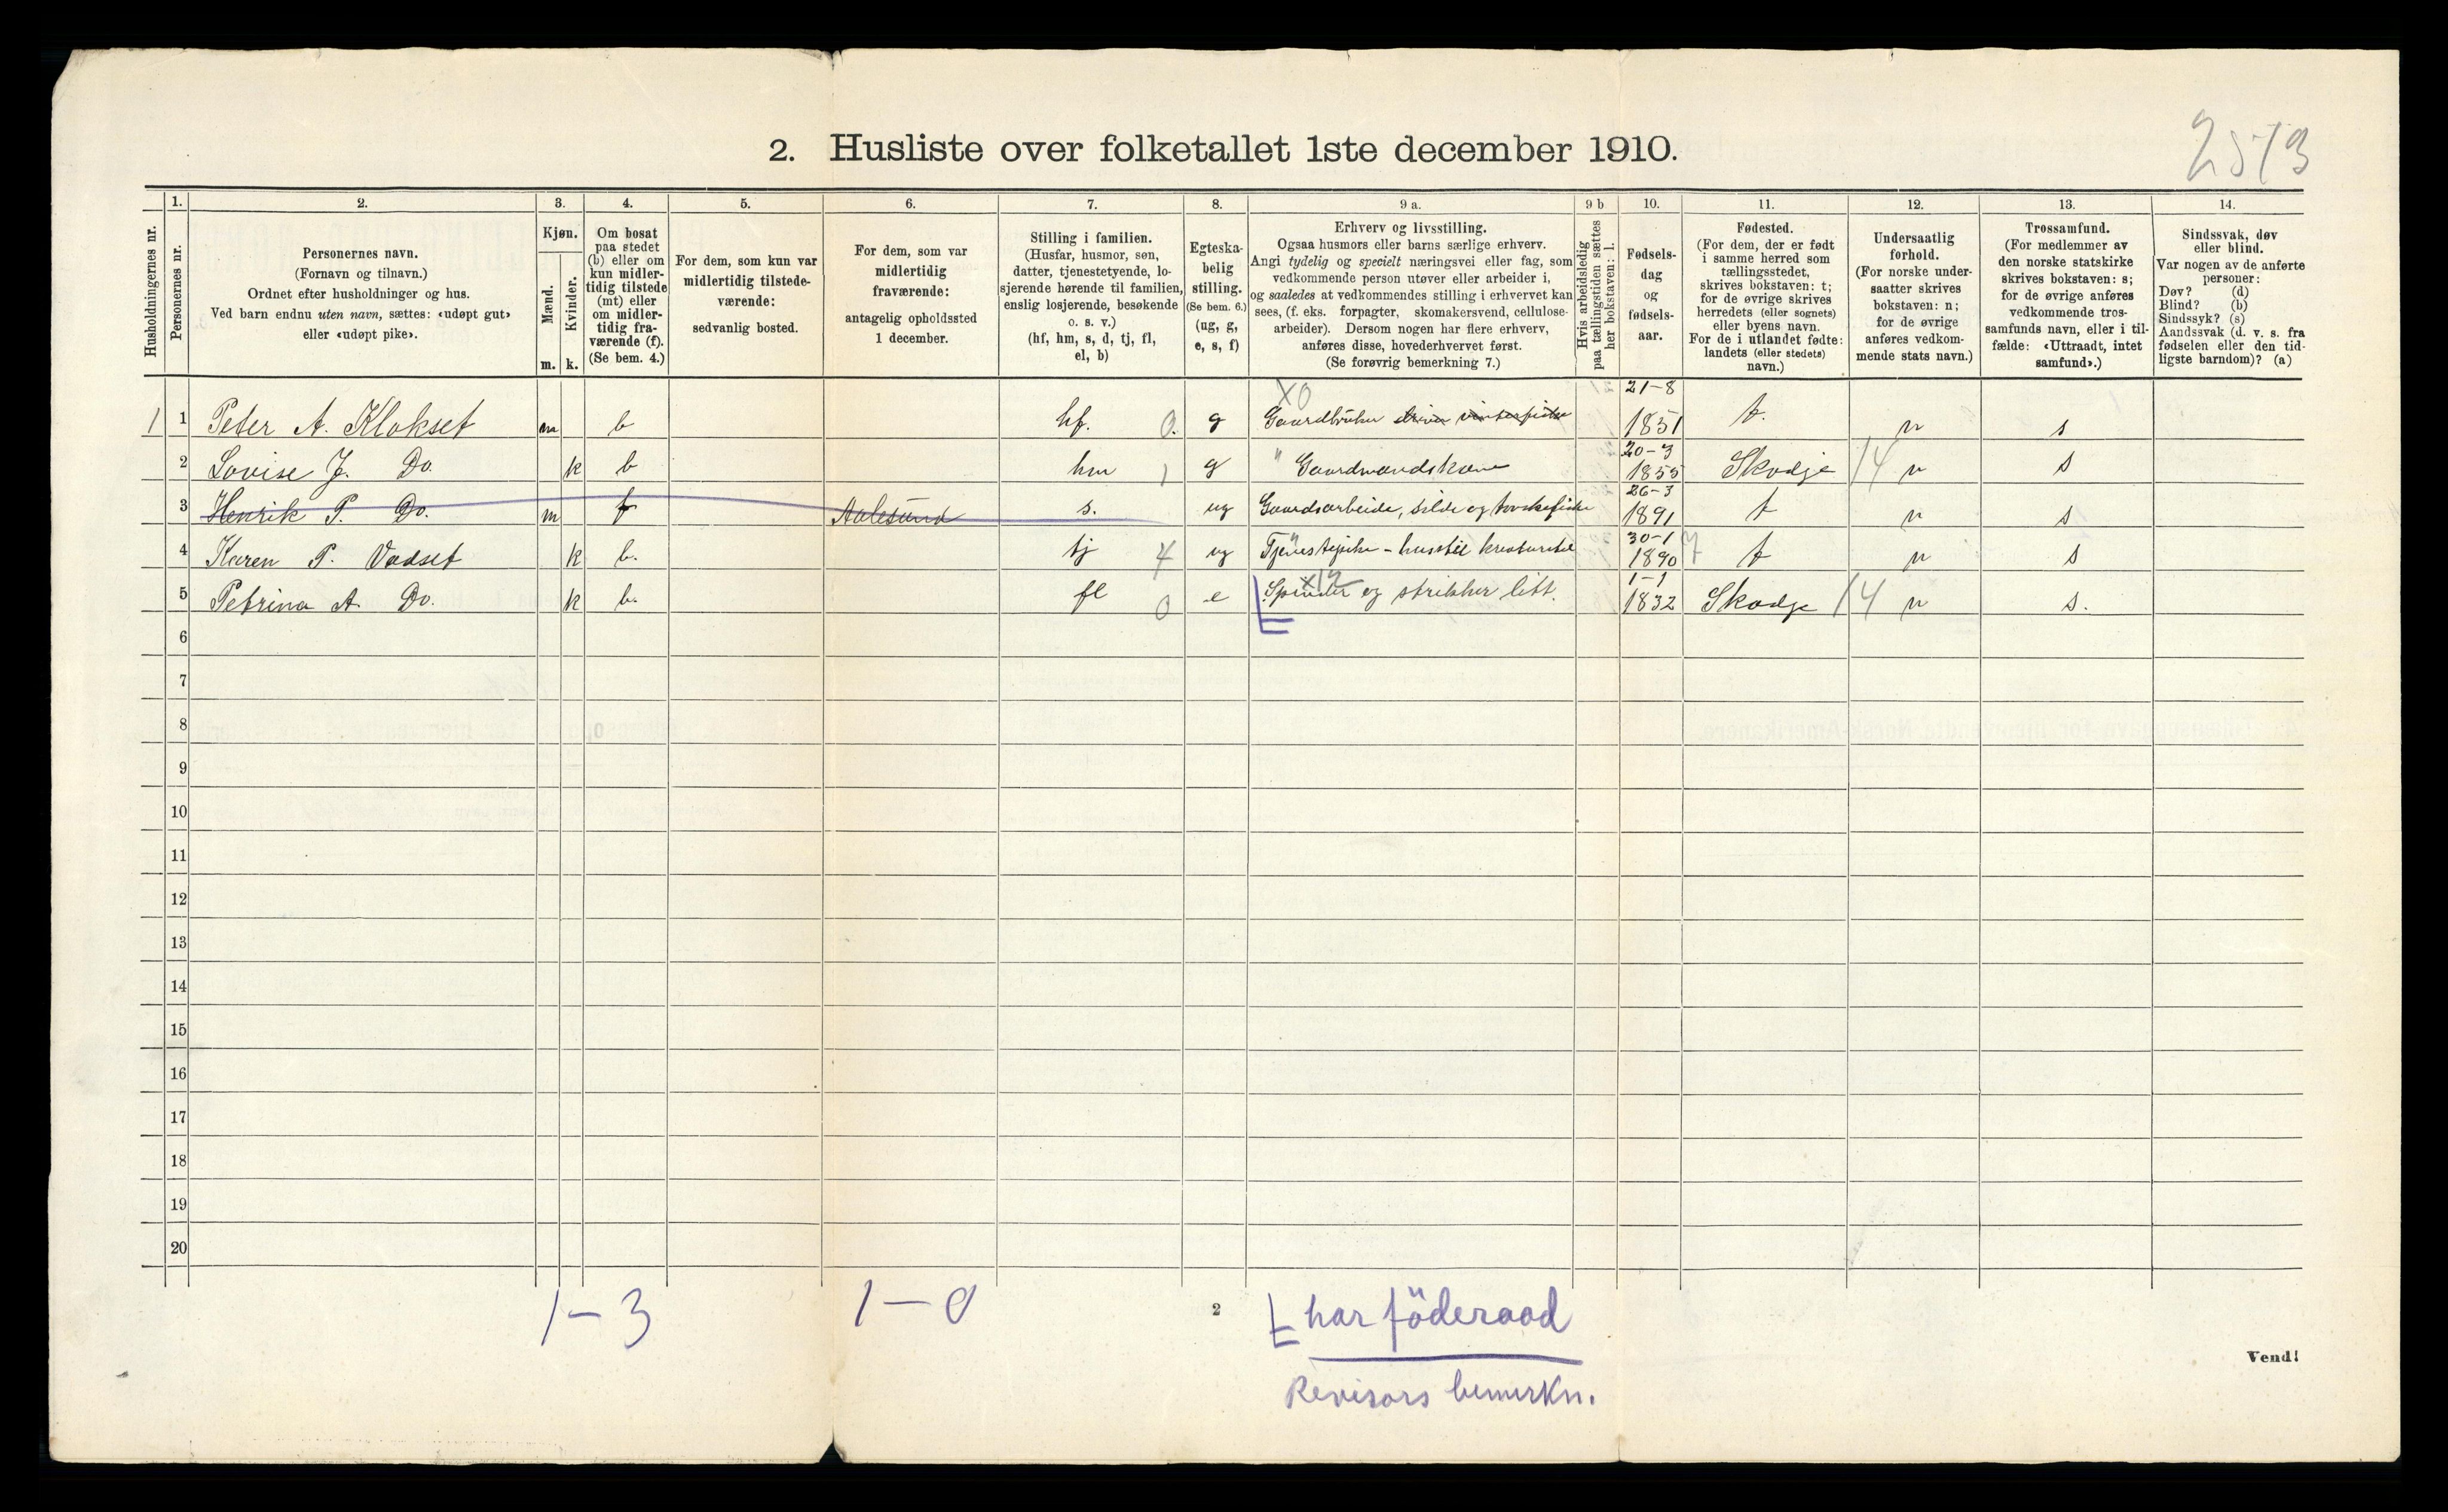 2573
2. Husliste over folketallet 1ste december 1910.
Husholdningernes nr.
1.
Personernes nr.
2.
Personernes navn.
(Fornavn og tilnavn.)
Ordnet efter husholdninger og hus.
Ved barn endnu uten navn, sættes: «udøpt gut»
eller «udøpt pike».
3.
Kjøn.
Mænd.
m.
Kvinder.
k.
4.
Om bosat
paa stedet
(b) eller om
kun midler-
tidig tilstede
(mt) eller
om midler-
tidig fra-
værende (f).
(Se bem. 4.)
5.
For dem, som kun var
midlertidig tilstede-
værende:
sedvanlig bosted.
6.
For dem, som var
midlertidig
fraværende:
antagelig opholdssted
1 december.
7.
Stilling i familien.
(Husfar, husmor, søn,
datter, tjenestetyende, lo-
sjerende hørende til familien,
enslig losjerende, besøkende
o. s. v.)
(hf, hm, s, d, tj, fl,
el, b)
8.
Egteska-
belig
stilling.
(Se bem. 6.)
(ug, g,
e, s, f)
9 a.
Erhverv og livsstilling.
Ogsaa husmors eller barns særlige erhverv.
Angi tydelig og specielt næringsvei eller fag, som
vedkommende person utøver eller arbeider i,
og saaledes at vedkommendes stilling i erhvervet kan
sees, (f. eks. forpagter, skomakersvend, cellulose-
arbeider). Dersom nogen har flere erhverv,
anføres disse, hovederhvervet først.
(Se forøvrig bemerkning 7.)
9 b
Hvis arbeidsledig
paa tællingstiden sættes
her bokstaven: l.
10.
Fødsels-
dag
og
fødsels-
aar.
11.
Fødested.
(For dem, der er født
i samme herred som
tællingsstedet,
skrives bokstaven: t;
for de øvrige skrives
herredets (eller sognets)
eller byens navn.
For de i utlandet fødte:
landets (eller stedets)
navn.)
12.
Undersaatlig
forhold.
(For norske under-
saatter skrives
bokstaven: n;
for de øvrige
anføres vedkom-
mende stats navn.)
13.
Trossamfund.
(For medlemmer av
den norske statskirke
skrives bokstaven: s;
for de øvrige anføres
vedkommende tros-
samfunds navn, eller i til-
fælde: «Uttraadt, intet
samfund».)
14.
Sindssvak, døv
eller blind.
Var nogen av de anførte
personer:
Døv? (d)
Blind? (b)
Sindssyk? (s)
Aandssvak (d. v. s. fra
fødselen eller den tid-
ligste barndom)? (a)
XO 21-8
1 1 Peter A. Klokset m b hf. 0. g Gaardbruker driver vinterfiske 1851 t. n s
20-3
2 Lovise J. Do. k b hm 1 g " Gaardmandskone 1855 Skodje 14 n s
26-3
3 Henrik P. Do. m f Aalesund s. ug Gaardsarbeide, silde og torskefiske 1891 t n s
30-1
4 Karen P. Vadset k b. tj 4 ug Tjenestepike - husstel kreaturstel 1890 7 t n s
X12 1-1
5 Petrina A. Do. k b. fl 0 e Spinder og strikker litt. 1832 Skodje 14 n s.
6
7
8
9
10
11
12
13
14
15
16
17
18
19
20
1-3 1-0 2 har föderaad
Vend!
Revisors bemerkn.